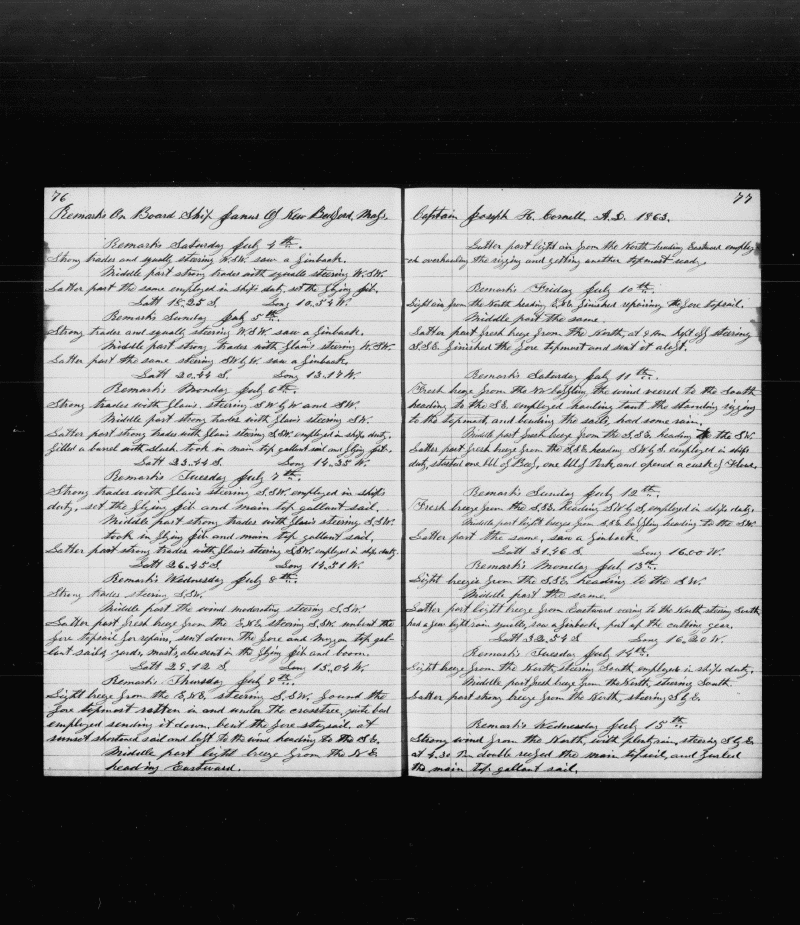 76
Remarks On Board Ship Janus Of New Bedford, Mass,
Remarks Saturday July 4th.
Strong trades and squalls steering W.S.W. saw a finback.
Middle part strong trades with squalls steering W.S.W.
Latter part the same employed in ships duty, set the flying jib.
Latt 18.25 S, Long 10.54 W.
Remarks Sunday July 5th.
Strong trades and squalls, steering W.S.W. saw a finback.
Middle part strong trades with steering W.S.W.
Latter part the same steering SW by W. saw a finback.
Latt 20.44 S. Long 13.17 W.
Remarks Monday July 6th.
Strong trades with steering S W by W and S.W.
Middle part strong trades with steering S.W.
Latter part strong trades with steering S.S.W. employed in ships duty.
filled a barrel with slush. took in main top gallant sail and flying jib.
Latt 23.44 S. Long 14.35 W.
Remarks Tuesday July 7th.
Strong trades with steering S.S.W. employed in ships
duty, set the flying jib and main top gallant sail.
Middle part strong trades with steering S.S.W.
took in flying jib and main top gallant sail.
Latter part strong trades with steering S.S.W. employed in ships duty.
Latt 26.45 S. Long 14.51 W.
Remarks Wednesday July 8th.
Strong trades steering S.S.W.
Middle part the wind moderating steering S.S.W.
Latter part fresh breeze from the E.N.E. steering S.S.W. unbent the
fore topsail for repairs, sent down the fore and mizzen top gal-
lant sails, yards, masts, also sent in the flying jib and boom.
Latt 29.12 S Long 15.04 W.
Remarks Thursday July 9th.
Light breeze from the E.N.E. steering S.S.W. found the
fore topmost rotten in and under the crosstree, quite bad
employed sending it down. bent the fore staysail. at
sunset shortened sail and luft to the wind heading to the S.E.
Middle part light breeze from the N.E.
heading Eastward.
77
Captain Joseph H. Cornell, A.D. 1863.
Latter part light air from the North heading Eastward employ-
ed overhauling the rigging and getting another topmast ready.
Remarks Friday July 10th.
Light air from the North heading E.N.E. finished repairing the fore topsail.
Middle part the same.
Latter part fresh breeze from the North, at 9 Am kept off steering
S.S.E. finished the fore topmast and sent it aloft.
Remarks Saturday July 11th.
Fresh breeze from the NW baffling the wind veered to the South
heading to the SE. employed hauling taut the standing rigging
to the topmast, and bending the sails, had some rain.
Middle part fresh breeze from the S.S.E. heading to the S.W.
Latter part fresh breeze from the S.S.E. heading S.W by S. employed in ships
duty, started one bbl of Beef, one bbl of Pork and opened a cask of Flour.
Remarks Sunday July 12th.
Fresh breeze from the S.S.E. heading S.W by S. employed in ships duty.
Middle part light breeze from S.S.E. baffling heading to the S.W.
Latter part the same, saw a finback.
Latt 31.46 S. Long 16.00 W.
Remarks Monday July 13th.
Light breeze from the S.S.E. heading to the S.W.
Middle part the same.
Latter part light breeze from Eastward veering to the North, steering South
had a few light rain squalls, saw a finback, put up the cutting gear.
Latt 32.54 S Long 16.20 W.
Remarks Tuesday July 14th.
Light breeze from the North, steering South, employed in ships duty.
Middle part fresh breeze from the North, steering South.
Latter part strong breeze from the North, steering S by E.
Remarks Wednesday July 15th.
Strong wind from the North, with plenty rain, steering S by E.
at 4.30 Pm double reefed the main topsail, and furled
the main top gallant sail.